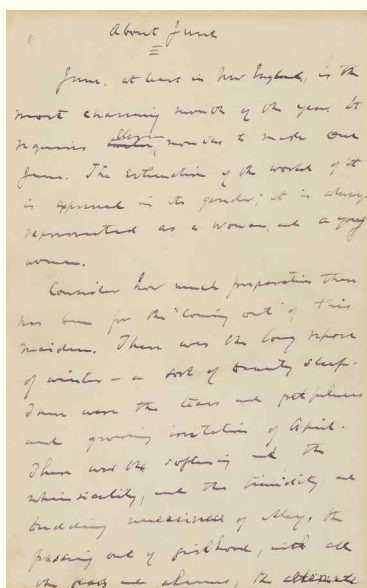 About June
June, at least in New England, is the
most charming month of the year. It
requires eleven months to make one
June. The estimation of the world of it
is expressed in its gender; it is always
represented as a woman, and a young
woman.
Consider how much preparation there
has been for the "coming out" of this
maiden. There was the long repose
of winter - a sort of beauty sleep.
There were the tears and petfulness
and growing irritation of April.
There was the softening and the
whimsicality, and the timidity, and
budding uneasiness of May, the
passing out of girlhood, with all
the and , the alternate